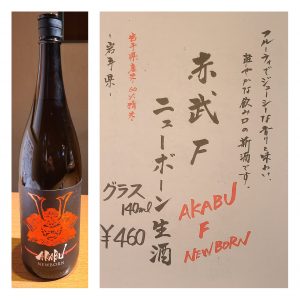 フルーティでジューシーな香りと味わい、
軽やかな飲み口の新酒です。
赤武 F
ニューボーン生酒
AKABU
F
NEWBORN
グラス
140ml
¥460
-岩手県-
AKABU
NEWBORN